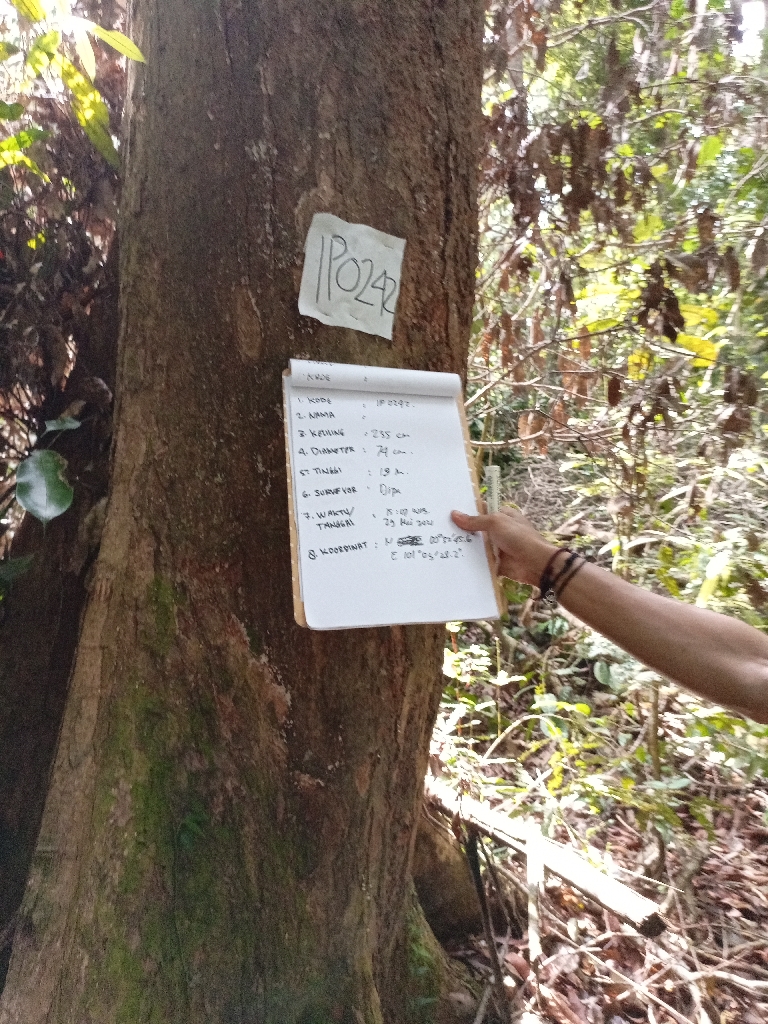 IP0242
KODE :
1. KODE : IP 0242.
2. NAMA :
3. KELILING : 235 cm
4. DIAMETER : 74 cm.
5. TINGGI : 18 m.
6. SURVEYOR : Dipa
7. WAKTU/ : 15:07 WIB.
TANGGAL 29 Mei 2021
8. KOORDINAT : N
E. 101°03'28.2".